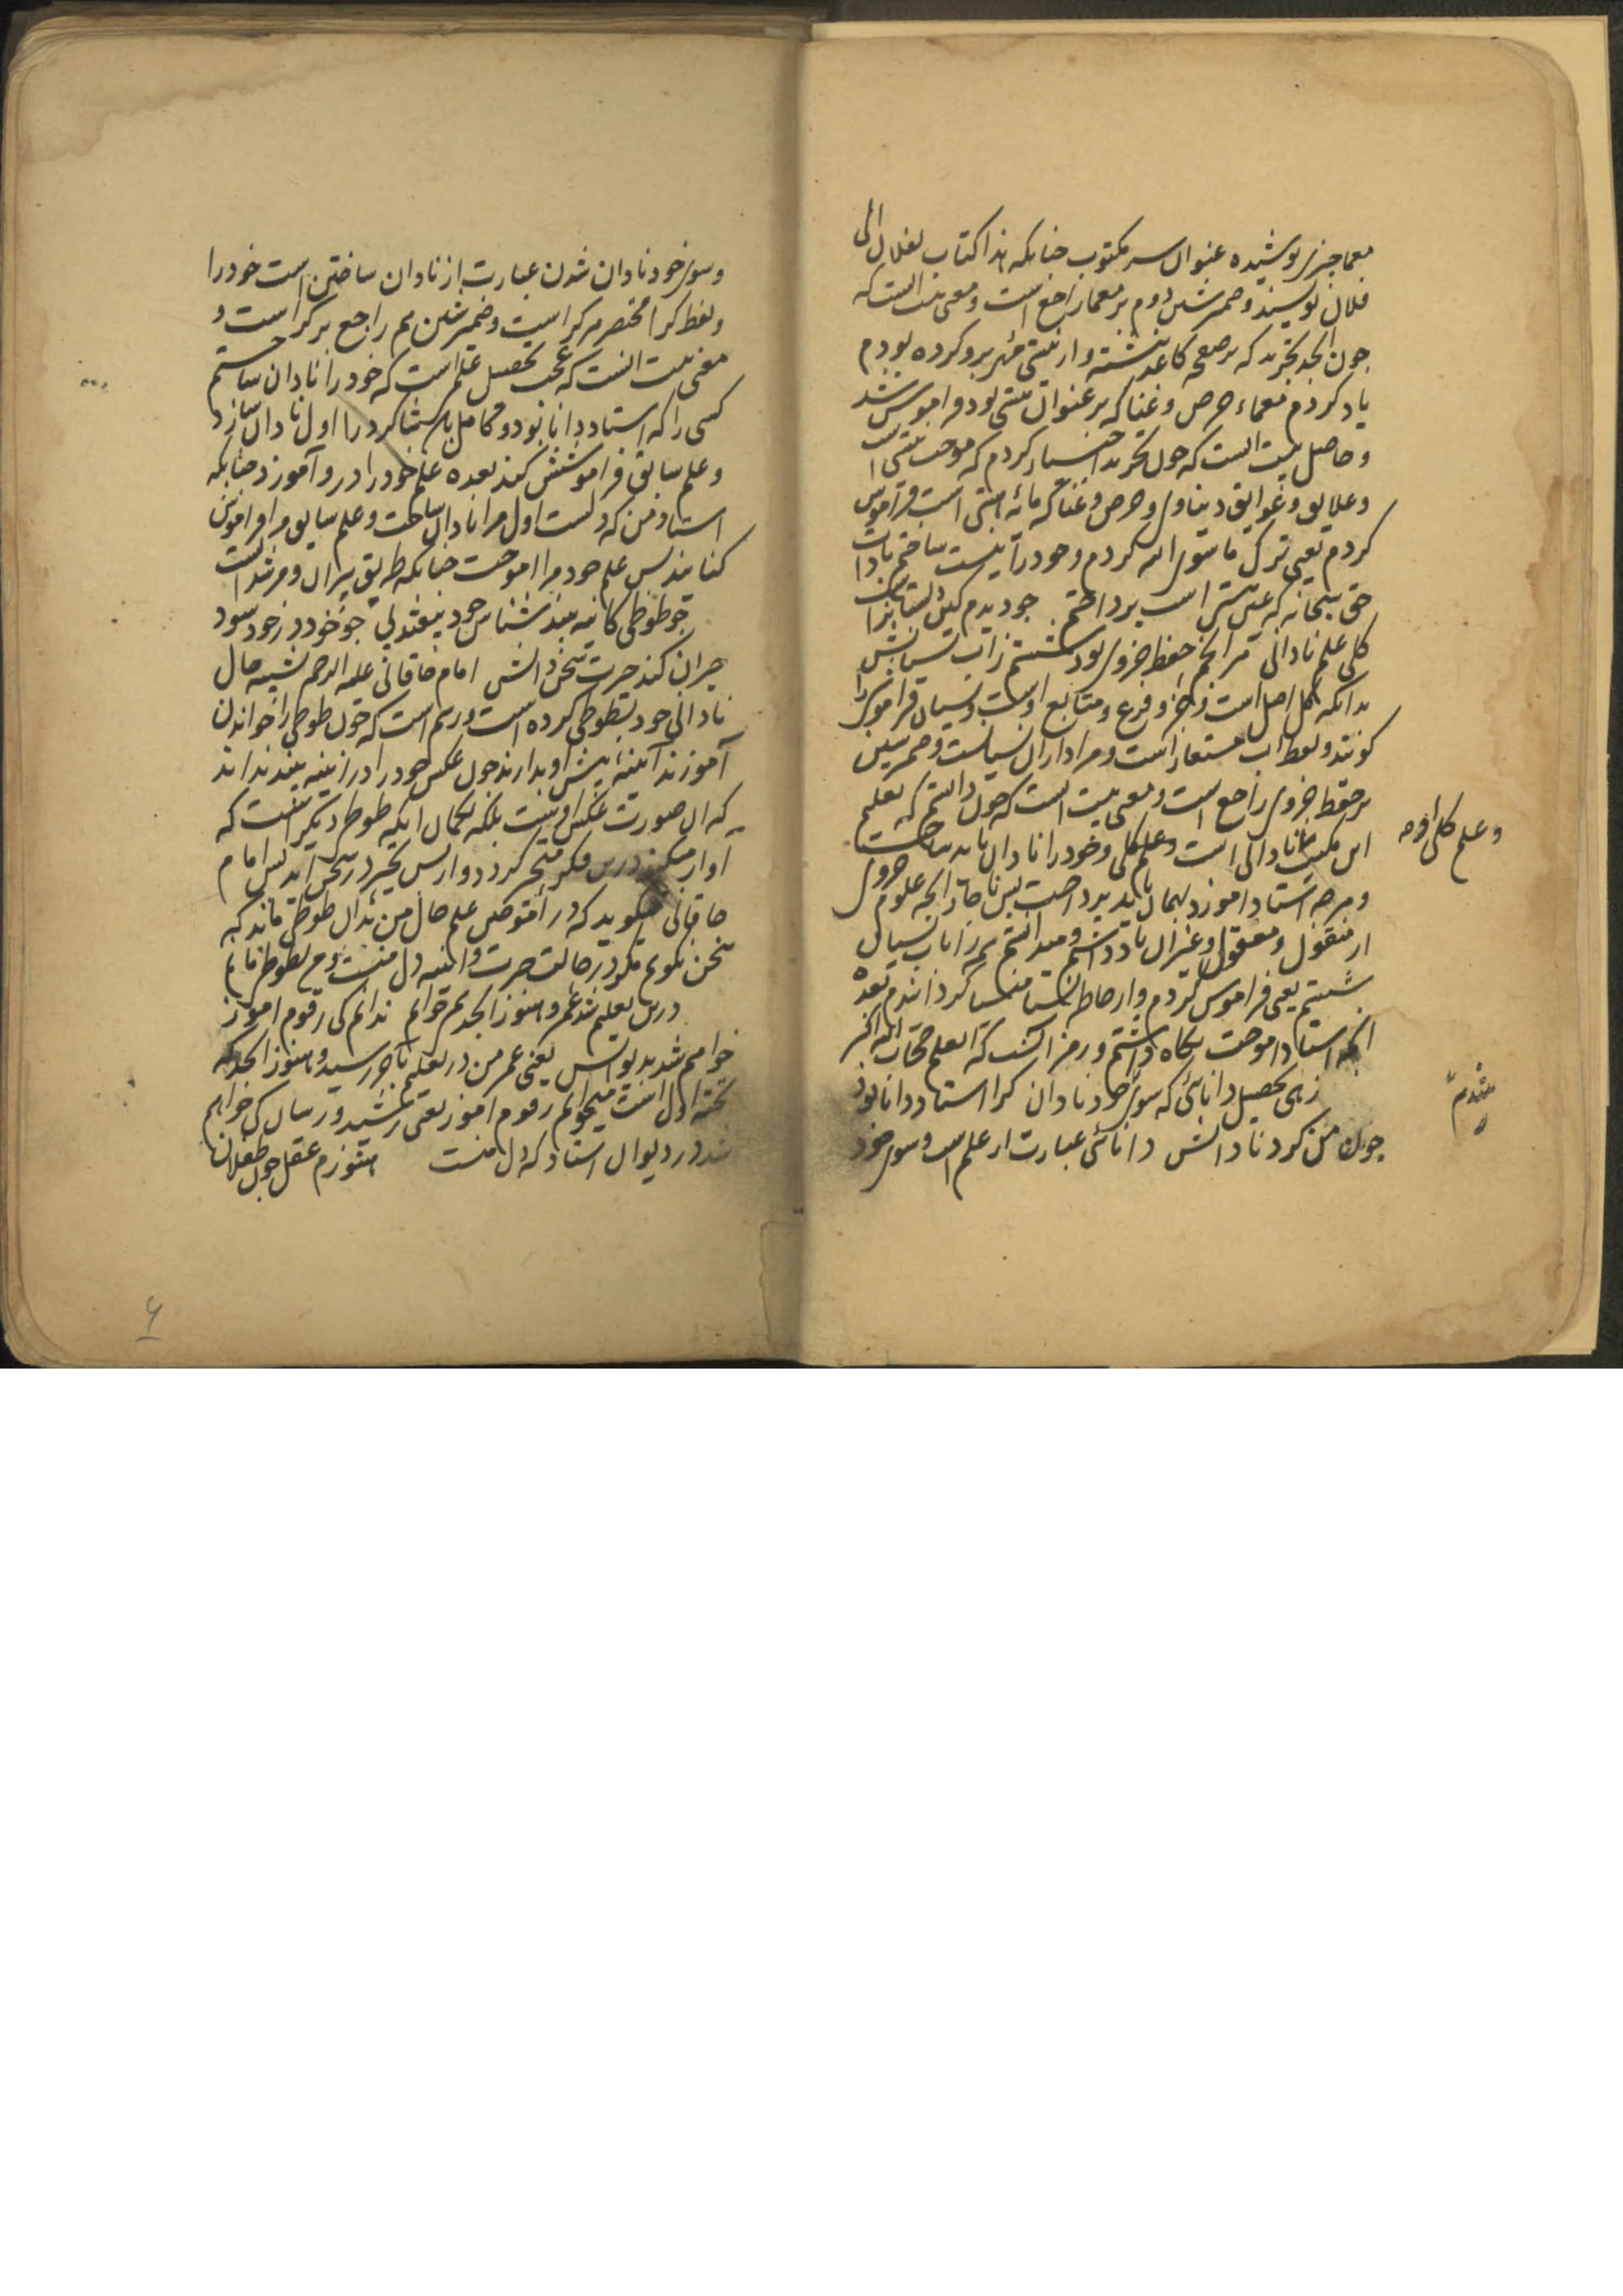 معما چیزی پوشیده عنوان سر مکتوب چنانکه هذا کتاب بفلان الی
فلان نویسند و ضمیر شین دوم بر معما راجع است و معنی بیت آنست که
چون ابجد تجرید که بر صفحه کاغذ نبشته و از نیستی مهر برو کرده بودم
یاد کردم معماء حرص و غنا که بر عنوان هستی بود فراموش شد
و حاصل بیت آنست که چون تجرید اختیار کردم که موجب نیستی است
و علایق و عوایق دنیاوی و حرص و غنا که مایه هستی است فراموش
کردم یعنی ترک ماسوی الله کردم و خود را نیست ساختم بذات
حق سبحانه که عین هستی است پرداختم چو دیدم کین دبستانراست
کلی علم نادانی هر آنچم حفظ جزوی بود شستم زآب نسیانش
بدانکه کل اصل است و جزو فرع و متابع اوست و نسیان فراموشی را
گویند و لفظ آب مستعار است و مراد از آن نسیانست و ضمیر شین
بر حفظ جزوی راجع است و معنی بیت آنست که چون دانستم که تعلیم
این مکتب نادانی است و علم کلی و خود را نادان باید ساخت
و علم کلی اوچه
و هرچه استاد آموزد بهمان باید پرداخت پس ناچار آنچه علوم جزوی
از منقول و معقول و غیر آن یاد داشتم و میدانستم همه را به آب نسیان
شستم یعنی فراموش کردم و از خاطر نسیا منسیا گردانیدم بعده
آنچه استاد آموخت نگاه داشتم و رمز آنست که العلم حجاب الله الاکبر
زهی تحصیل دانائی که سوی خود نادان کرا استاد دانا بود
شدم
چون من کرد نادانش دانائی عبارت از علم است و سوی خود
و سوی خود نادان شدن عبارت از نادان ساختن است خود را
و لفظ کرا مختصر هر کراست و ضمیر شین هم راجع بر کراست و
معنی بیت آنست که عجب تحصیل علم است که خود را نادان ساختم
کسی را که استاد دانا بود و کامل باشد شاگرد را اول نادان سازد
و علم سابق فراموشش کند بعده علم خود را درو آموزد چنانکه
استاد من که دلست اول مرا نادان ساخت و علم سابق مرا فراموش
کنانید پس علم خود مرا آموخت چنانکه طریق پیران و مرشد انست
چو طوطی کآینه بیند شناس خود بیفتد پی چو خود در خود شود
حیران کند حیرت سخن دانش امام خاقانی علیه الرحمه تشبیه حال
نادانی خود بطوطی کرده است و رسم است که چون طوطی را خواندن
آموزند آئینه پیش او بدارند چون عکس خود را در آئینه بیند نداند
که آن صورت عکس اوست بلکه بگمان آنکه طوطی دیگر است که
آواز میکند درین فکر متحیر گردد و ازین تحیر در سخن آید پس امام
خاقانی میگوید که در آموختن علم حال من بدان طوطی ماند که
سخن نگویم مگر در حالت حیرت و آئینه دل منست و من بطوطی مانم
درین تعلیم شد عمر و هنوز ابجد همی خوانم ندانم کی رقوم آموز
خواهم شد بدیوانش یعنی عمر من در تعلیم بآخر رسید و هنوز ابجد که
تخته اول است میخوانم رقوم آموز یعنی ترشید و رسال کی خواهم
شد در دیوان استاد که دل منست هنوزم عقل چون طفلان
۶